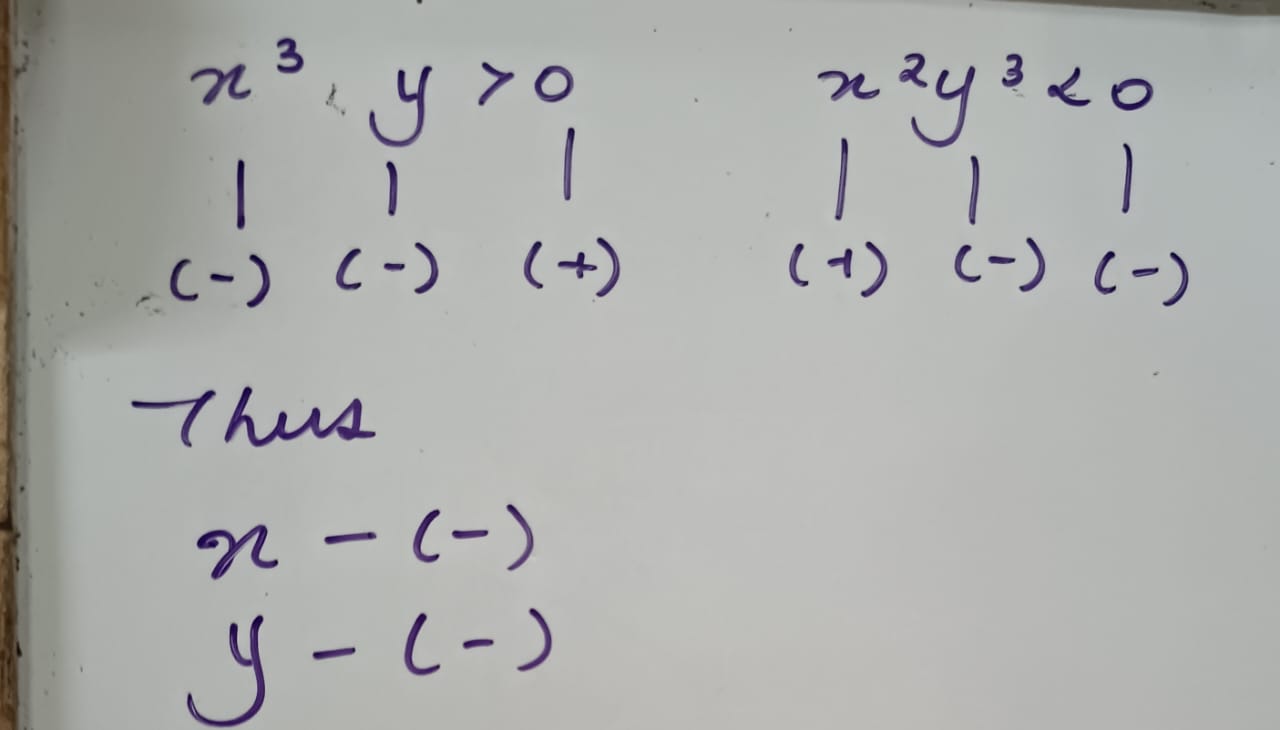 x³ y > 0 x²y³ < 0
(-) (-) (+) (+) (-) (-)
Thus
x - (-)
y - (-)